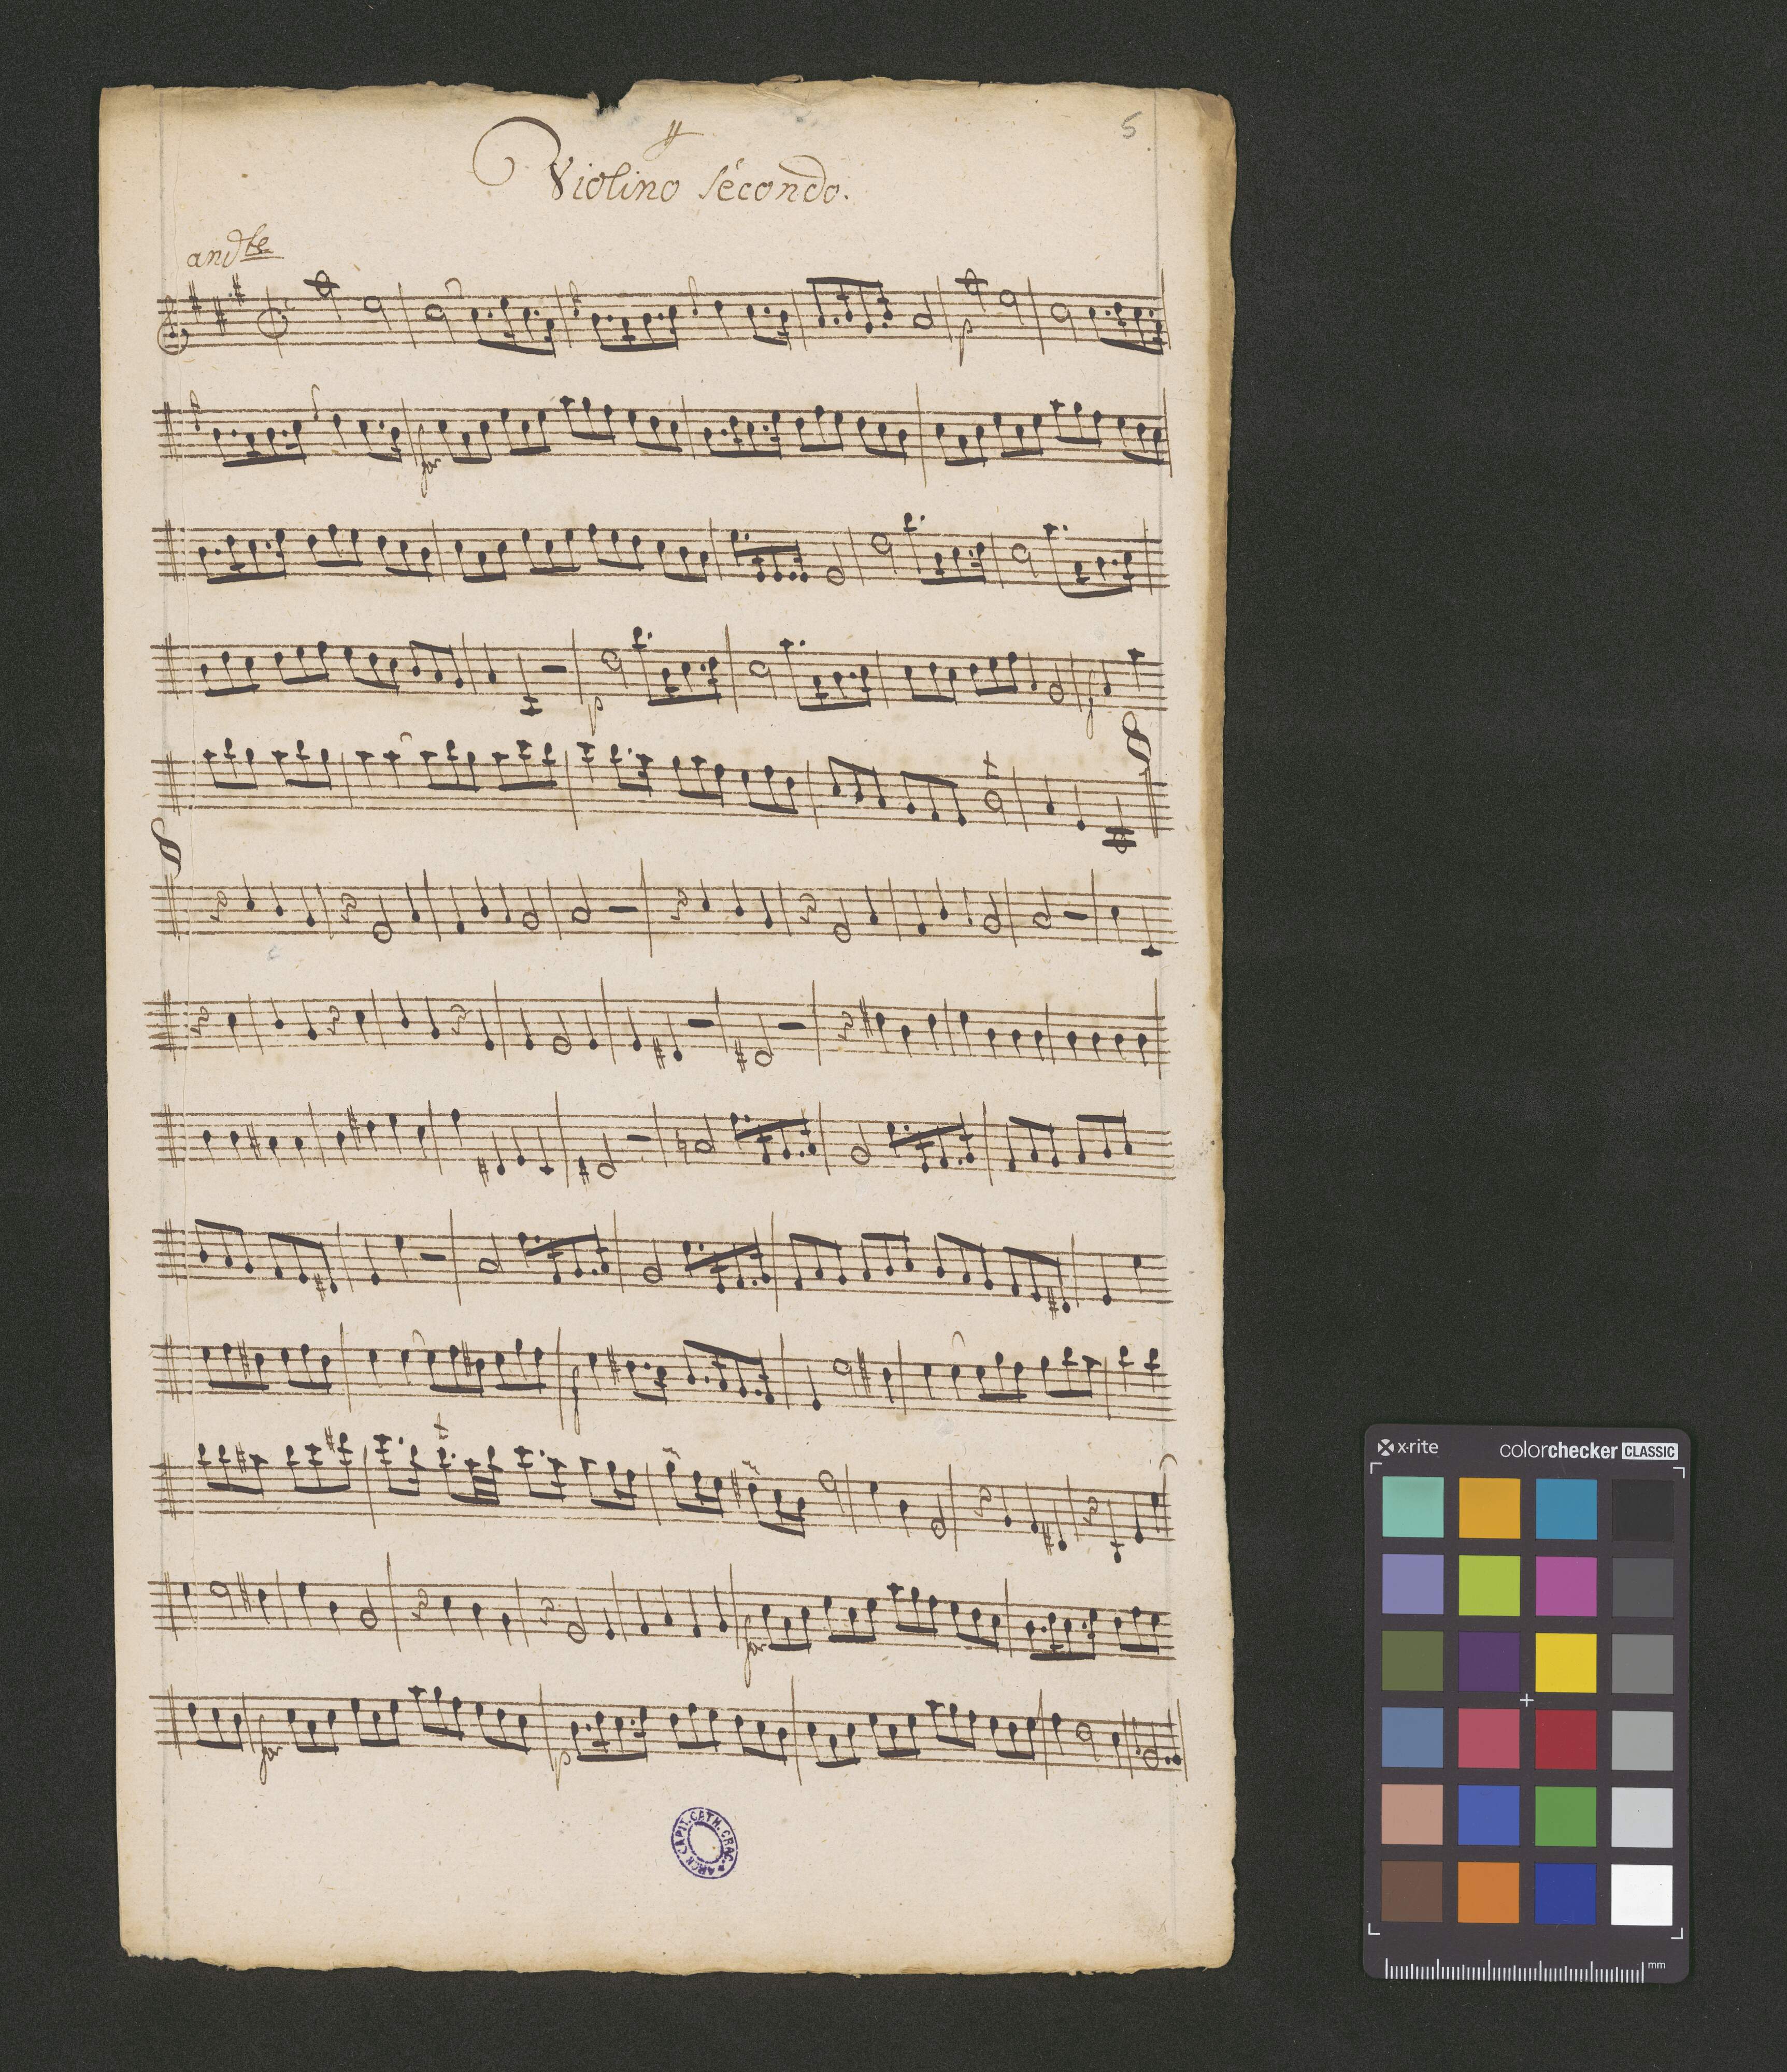 5
Violino secondo.
andte
p
for
p
f
f
for
for
p
ARCH. CAPIT. CATH. CRAC.
x-rite colorchecker CLASSIC
mm